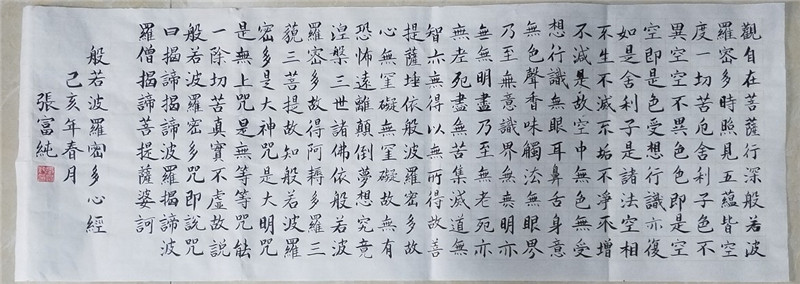 觀自在菩薩行深般若波
羅密多時照見五蘊皆空
度一切苦厄舍利子色不
異空空不異色色即是空
空即是色受想行識亦復
如是舍利子是諸法空相
不生不滅不垢不淨不增
不減是故空中無色無受
想行識無眼耳鼻舌身意
無色聲香味觸法無眼界
乃至無意識界無無明亦
無無明盡乃至無老死亦
無老死盡無苦集滅道無
智亦無得以無所得故菩
提薩埵依般波羅密多故
心無罣礙無罣礙故無有
恐怖遠離顛倒夢想究竟
涅槃三世諸佛依般若波
羅密多故得阿耨多羅三
藐三菩提故知般若波羅
密多是大神咒是大明咒
是無上咒是無等等咒能
一除切苦真實不虛故說
般若波羅密多咒即說咒
曰揭諦揭諦波羅揭諦波
羅僧揭諦菩提薩婆訶
般若波羅密多心經
己亥年春月
張富純